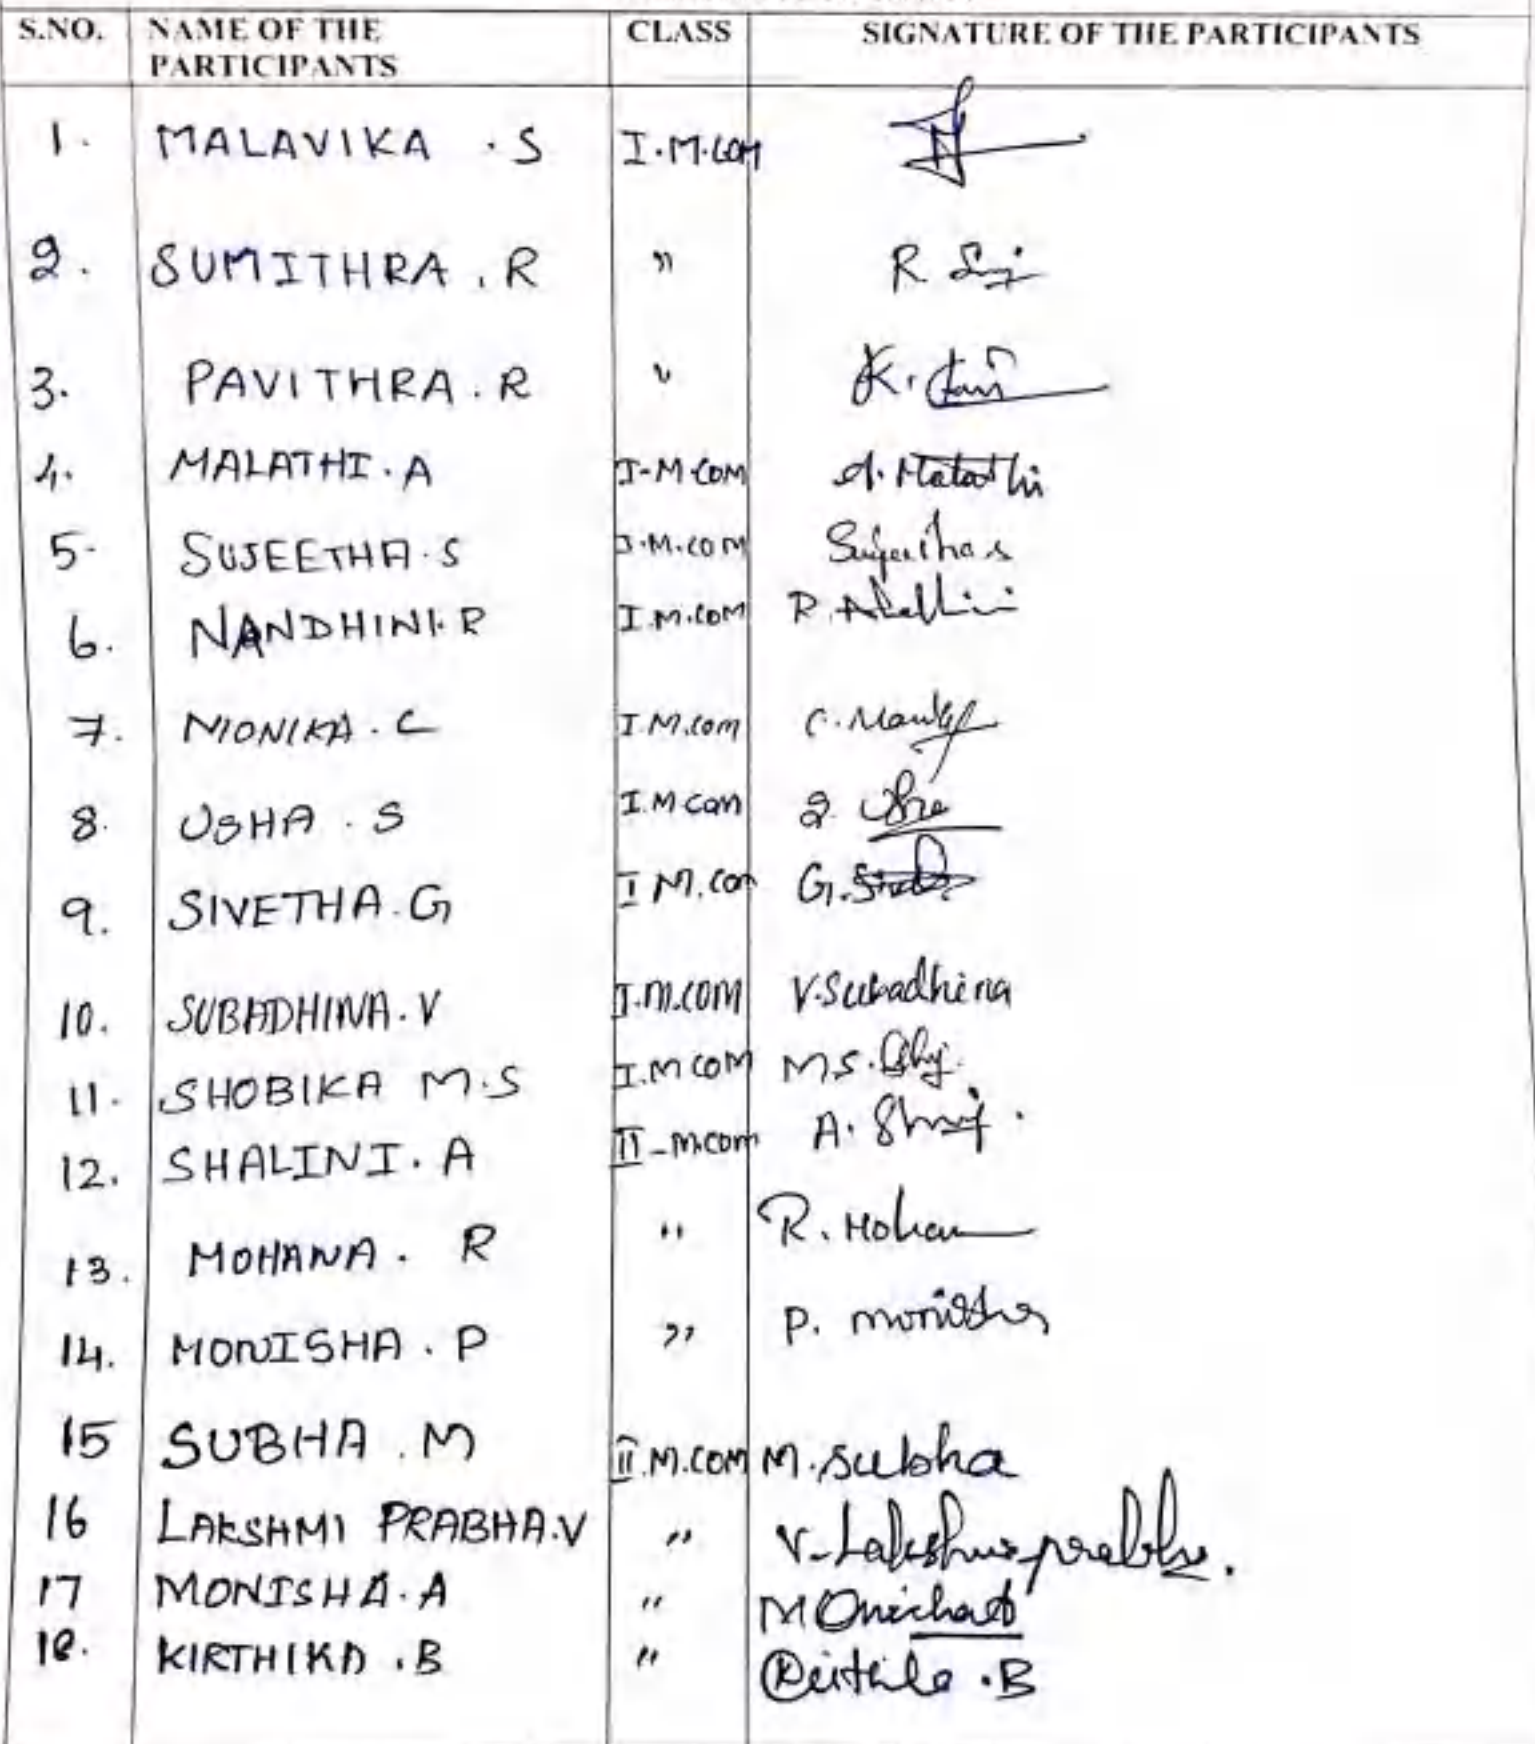 S.NO. NAME OF THE PARTICIPANTS CLASS SIGNATURE OF THE PARTICIPANTS
1. MALAVIKA .S I.M.COM
2. SUMITHRA .R " R
3. PAVITHRA.R "
4. MALATHI.A I-M.COM A.Malathi
5. SUJEETHA.S I.M.COM Sujeetha.s
6. NANDHINI.R I.M.COM R.
7. MONIKA.C I.M.com C.
8. USHA.S I.M com Usha
9. SIVETHA.G I M.com G.
10. SUBADHINA.V I.M.COM V.Subadhina
11. SHOBIKA M.S I.M COM M S.
12. SHALINI.A II-M.com A.
13. MOHANA. R " R. Mohan
14. MONISHA.P " P. monisha
15 SUBHA.M II.M.COM M.Subha
16 LAKSHMI PRABHA.V " V-Lakshmi prabha.
17 MONISHA.A " MOnisha
18. KIRTHIKA.B " .B